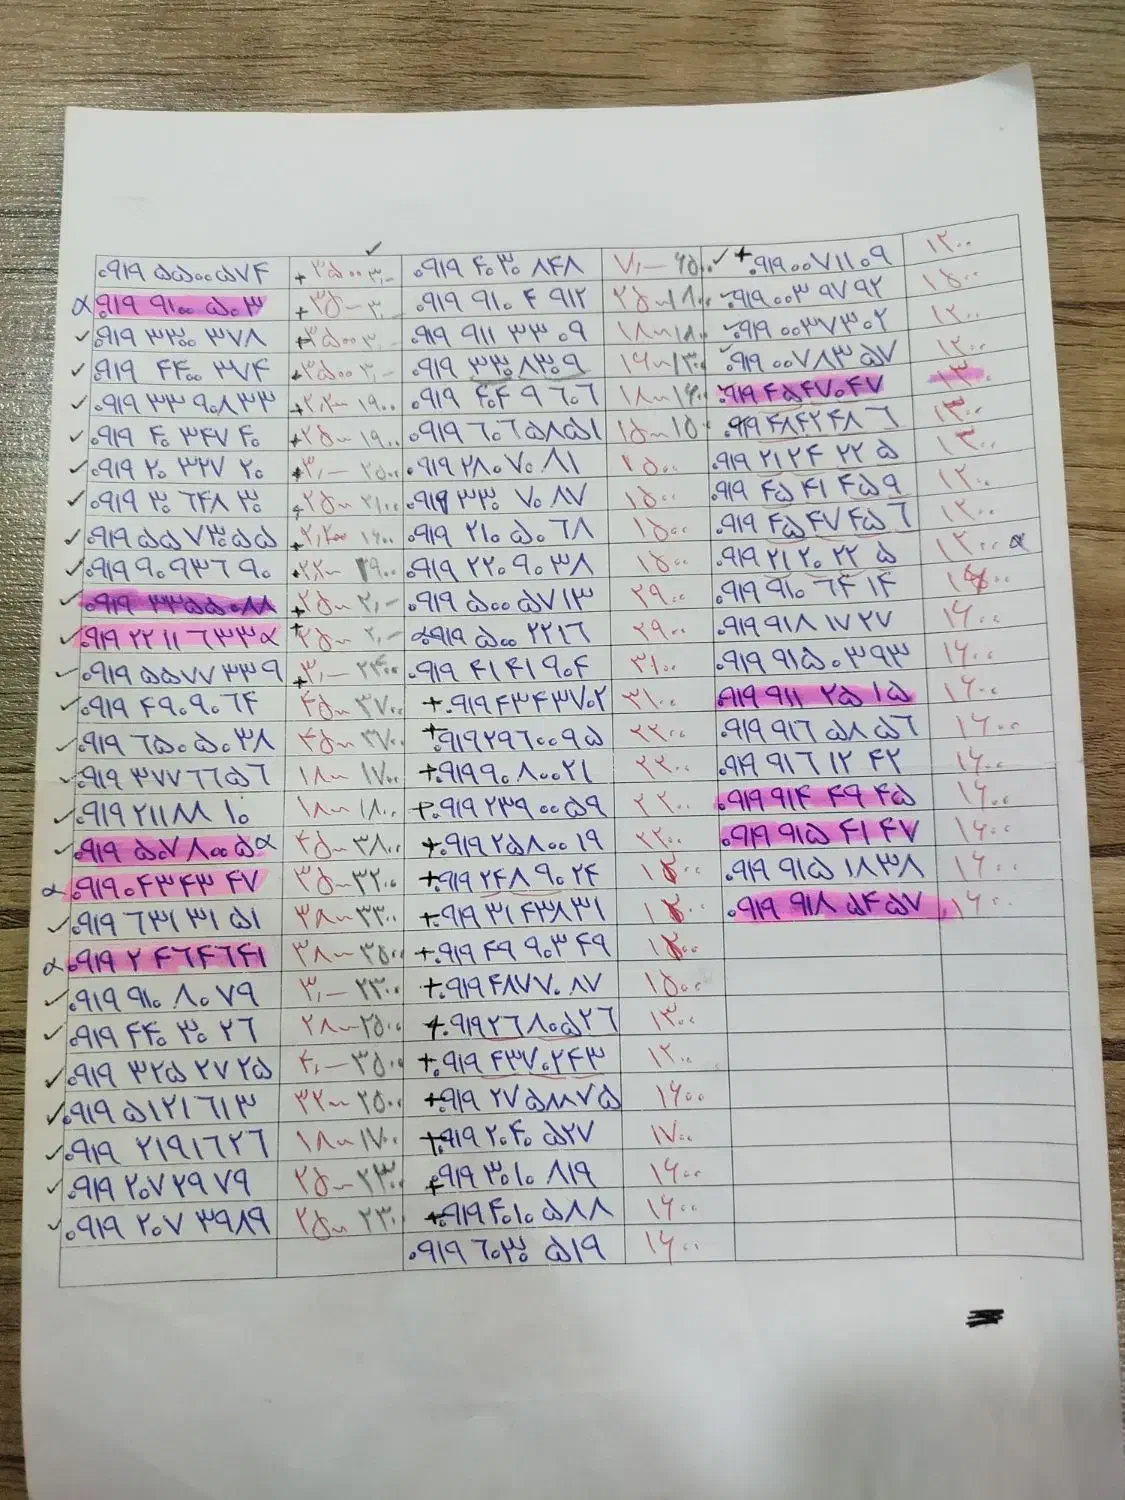 ۰۹۱۹ ۵۵۰۰ ۵۷۴ + ۳۵۰۰ ۳,— ۰۹۱۹ ۴۰۳۰ ۸۴۸ ۷,— ۶۵۰۰ ✓ + ۰۹۱۹ ۰۰۷۱۱۰۹ ۱۲۰۰
α ۰۹۱۹ ۹۱۰۰ ۵۰۳ + ۳۵— ۳,— ۰۹۱۹ ۹۱۰ ۴ ۹۱۲ ۲۵—۱۸۰۰ ✓ ۰۹۱۹ ۰۰۳ ۹۷ ۹۲ ۱۵۰۰
✓ ۰۹۱۹ ۳۳۰۰ ۳۷۸ + ۳۵۰۰ ۳,— ۰۹۱۹ ۹۱۱ ۳۳ ۰۹ ۱۸—۱۸۰۰ ✓ ۰۹۱۹ ۰۰۳۷۳۰۲ ۱۲۰۰
✓ ۰۹۱۹ ۴۴۰۰ ۳۷۴ + ۳۵۰۰ ۳,— ۰۹۱۹ ۳۳۰ ۸۳۰۹ ۱۶—۱۳۰۰ ✓ ۰۹۱۹ ۰۰۷۸۳ ۵۷ ۱۲۰۰
✓ ۰۹۱۹ ۳۳ ۹۰۸ ۳۳ + ۲,۲— ۱۹۰۰ ۰۹۱۹ ۴۰۴ ۹ ۶۰۶ ۱۸—۱۶۰۰ ۰۹۱۹ ۴۵۴۷۰۴۷ ۱۳۰۰
✓ ۰۹۱۹ ۴۰ ۳۴۷ ۴۰ + ۲۵— ۱۹۰۰ ۰۹۱۹ ۶۰۶ ۵۸۵۱ ۱۵—۱۵۰۰ ۰۹۱۹ ۴۸۴۲ ۴۸ ۶ ۱۲۰۰
✓ ۰۹۱۹ ۲۰ ۳۲۷ ۲۰ + ۳,— ۲۵۰۰ ۰۹۱۹ ۲۸۰ ۷۰ ۸۱ ۱۵۰۰ ۰۹۱۹ ۲۱۲۴ ۲۲ ۵ ۱۲۰۰
✓ ۰۹۱۹ ۳۰ ۶۴۸ ۳۰ + ۲۵— ۲۱۰۰ ۰۹۱۹ ۳۳۰ ۷۰ ۸۷ ۱۵۰۰ ۰۹۱۹ ۴۵ ۴۱ ۴۵۹ ۱۲۰۰
✓ ۰۹۱۹ ۵۵ ۷۳۰ ۵۵ + ۲,۲۰۰ ۱۶۰۰ ۰۹۱۹ ۲۱۰ ۵۰ ۶۸ ۱۵۰۰ ۰۹۱۹ ۴۵ ۴۷ ۴۵۶ ۱۲۰۰
✓ ۰۹۱۹ ۹۰ ۹۳۶ ۹۰ + ۲,۲— ۱۹۰۰ ۰۹۱۹ ۲۲۰ ۹۰ ۳۸ ۱۵۰۰ ۰۹۱۹ ۲۱۲۰ ۲۲ ۵ ۱۲۰۰ α
✓ ۰۹۱۹ ۳۳۵۵۰۸۸ + ۲۵— ۲,— ۰۹۱۹ ۵۰۰ ۵۷ ۱۳ ۲۹۰۰ ۰۹۱۹ ۹۱۰ ۶۴ ۱۴
✓ ۰۹۱۹ ۲۲ ۱۱ ۶۳۳ α + ۲۵— ۲,— α ۰۹۱۹ ۵۰۰ ۲۲۱۶ ۲۹۰۰ ۰۹۱۹ ۹۱۸ ۱۷ ۲۷ ۱۶۰۰
✓ ۰۹۱۹ ۵۵۷۷ ۳۳۹ + ۳,— ۲۴۰۰ ۰۹۱۹ ۴۱ ۴۱ ۹۰۴ ۳۱۰۰ ۰۹۱۹ ۹۱۵۰ ۳۹۳ ۱۶۰۰
✓ ۰۹۱۹ ۴۹۰ ۹۰ ۶۴ ۴۵— ۳۷۰۰ + ۰۹۱۹ ۴۳۴۳۷۰۲ ۳۱۰۰ ۰۹۱۹ ۹۱۱ ۲۵ ۱۵ ۱۶۰۰
✓ ۰۹۱۹ ۶۵۰ ۵۰ ۳۸ ۴۵— ۳۷۰۰ + ۰۹۱۹ ۲۹۶۰۰ ۹۵ ۲۲۰۰ ۰۹۱۹ ۹۱۶ ۵۸ ۵۶ ۱۶۰۰
✓ ۰۹۱۹ ۳۷۷ ۶۶۵۶ ۱۸— ۱۷۰۰ + ۰۹۱۹ ۹۰۸۰۰۲۱ ۲۲۰۰ ۰۹۱۹ ۹۱۶ ۱۲ ۴۲ ۱۶۰۰
✓ ۰۹۱۹ ۲۱۱ ۸۸ ۱۰ ۱۸— ۱۸۰۰ + ۰۹۱۹ ۲۳۹ ۰۰ ۵۹ ۲۲۰۰ ۰۹۱۹ ۹۱۴ ۴۹ ۴۵ ۱۶۰۰
✓ ۰۹۱۹ ۵۰۷ ۸۰۰ ۵ α ۴۵— ۳۸۰۰ + ۰۹۱۹ ۲۵۸۰۰ ۱۹ ۲۲۰۰ ۰۹۱۹ ۹۱۵ ۴۱ ۴۷ ۱۶۰۰
α ۰۹۱۹ ۰۴۳۴۳ ۴۷ ۳۵— ۳۲۰۰ + ۰۹۱۹ ۲۴۸ ۹۰ ۲۴ ۰۹۱۹ ۹۱۵ ۱۸۳۸ ۱۶۰۰
✓ ۰۹۱۹ ۶۳۱ ۳۱ ۵۱ ۳۸— ۳۳۰۰ + ۰۹۱۹ ۳۱ ۴۳۸۳۱ ۰۹۱۹ ۹۱۸ ۵۴۵۷ ۱۶۰۰
α ۰۹۱۹ ۲ ۴۶۴۶۴۱ ۳۸— ۳۵۰۰ + ۰۹۱۹ ۴۹ ۹۰۳ ۴۹
✓ ۰۹۱۹ ۹۱۰ ۸۰ ۷۹ ۳,— ۲۳۰۰ + ۰۹۱۹ ۴۸۷۷۰ ۸۷ ۱۵۰۰
✓ ۰۹۱۹ ۴۴۰ ۳۰ ۲۶ ۲۸— ۲۵۰۰ + ۰۹۱۹ ۲۶۸۰۵۲۶ ۱۳۰۰
✓ ۰۹۱۹ ۳۲۵ ۲۷ ۲۵ ۴,— ۳۵۰۰ + ۰۹۱۹ ۴۳۷۰۲۴۳ ۱۲۰۰
✓ ۰۹۱۹ ۵۱۲۱ ۶۱۳ ۳۲— ۲۵۰۰ + ۰۹۱۹ ۲۷ ۵۸۸ ۷۵ ۱۶۰۰
✓ ۰۹۱۹ ۲۱۹۱۶۲۶ ۱۸— ۱۷۰۰ + ۰۹۱۹ ۲۰۴۰ ۵۲۷ ۱۷۰۰
✓ ۰۹۱۹ ۲۰۷ ۲۹ ۷۹ ۲۵— ۲۳۰۰ + ۰۹۱۹ ۳۰۱۰ ۸۱۹ ۱۶۰۰
✓ ۰۹۱۹ ۲۰۷ ۳۹۸۹ ۲۵— ۲۳۰۰ + ۰۹۱۹ ۴۰۱۰ ۵۸۸ ۱۶۰۰
۰۹۱۹ ۶۰۳۰ ۵۱۹ ۱۶۰۰